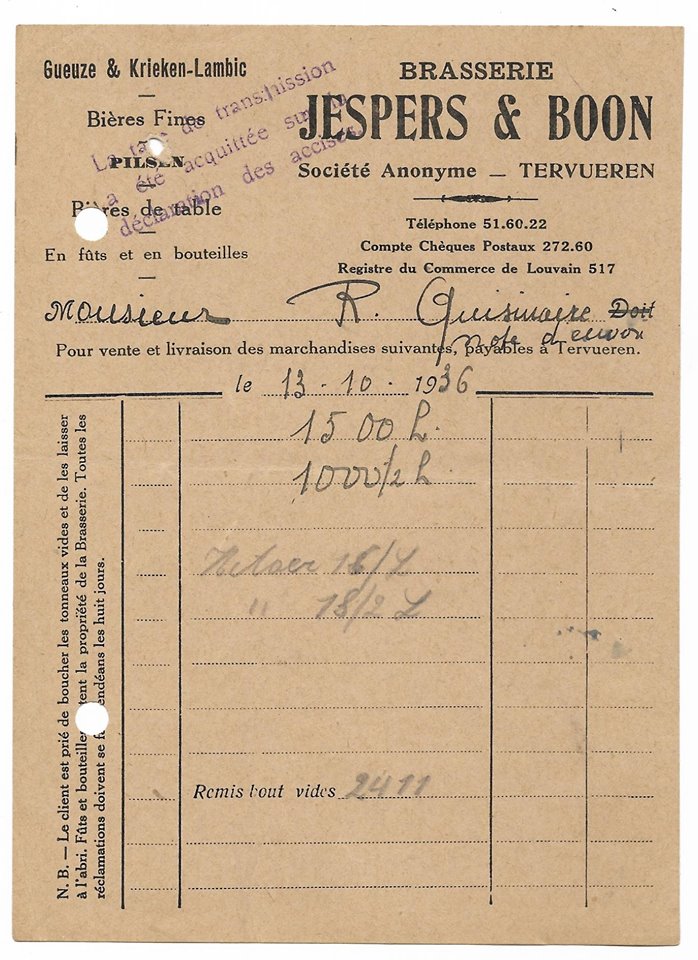 Gueuze & Krieken-Lambic
Bières Fines
PILSEN
Bières de table
En fûts et en bouteilles
La taxe de transmission
a été acquittée sur la
déclaration des accises.
BRASSERIE
JESPERS & BOON
Société Anonyme — TERVUEREN
Téléphone 51.60.22
Compte Chèques Postaux 272.60
Registre du Commerce de Louvain 517
Monsieur R. Quisinaire Doit
note d'envoi
Pour vente et livraison des marchandises suivantes, payables à Tervueren.
le 13-10-1936
1500 L.
1000/2 L.
16/L
" 18/2 L
Remis bout vides 2411
N. B. — Le client est prié de boucher les tonneaux vides et de les laisser
à l'abri. Fûts et bouteilles la propriété de la Brasserie. Toutes les
réclamations doivent se endéans les huit jours.